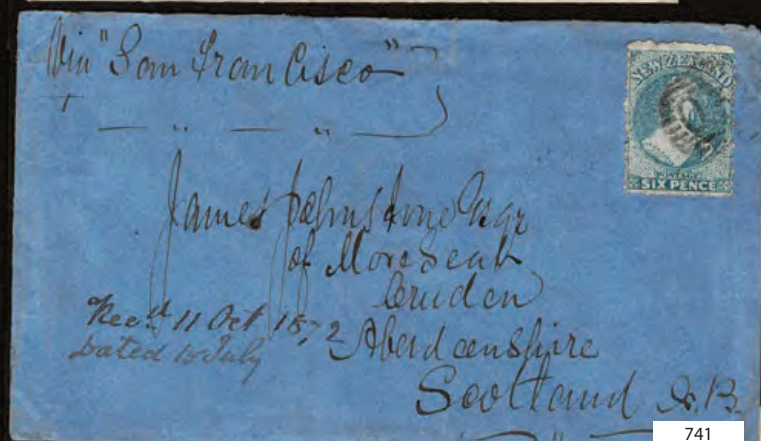 Via "San Francisco"
NEW ZEALAND
POSTAGE
SIX PENCE
James Johnstone Esqr
of Moreseat
Cruden
Aberdeenshire
Scotland N.B.
Recd. 11 Oct 1872
Dated 10 July
741